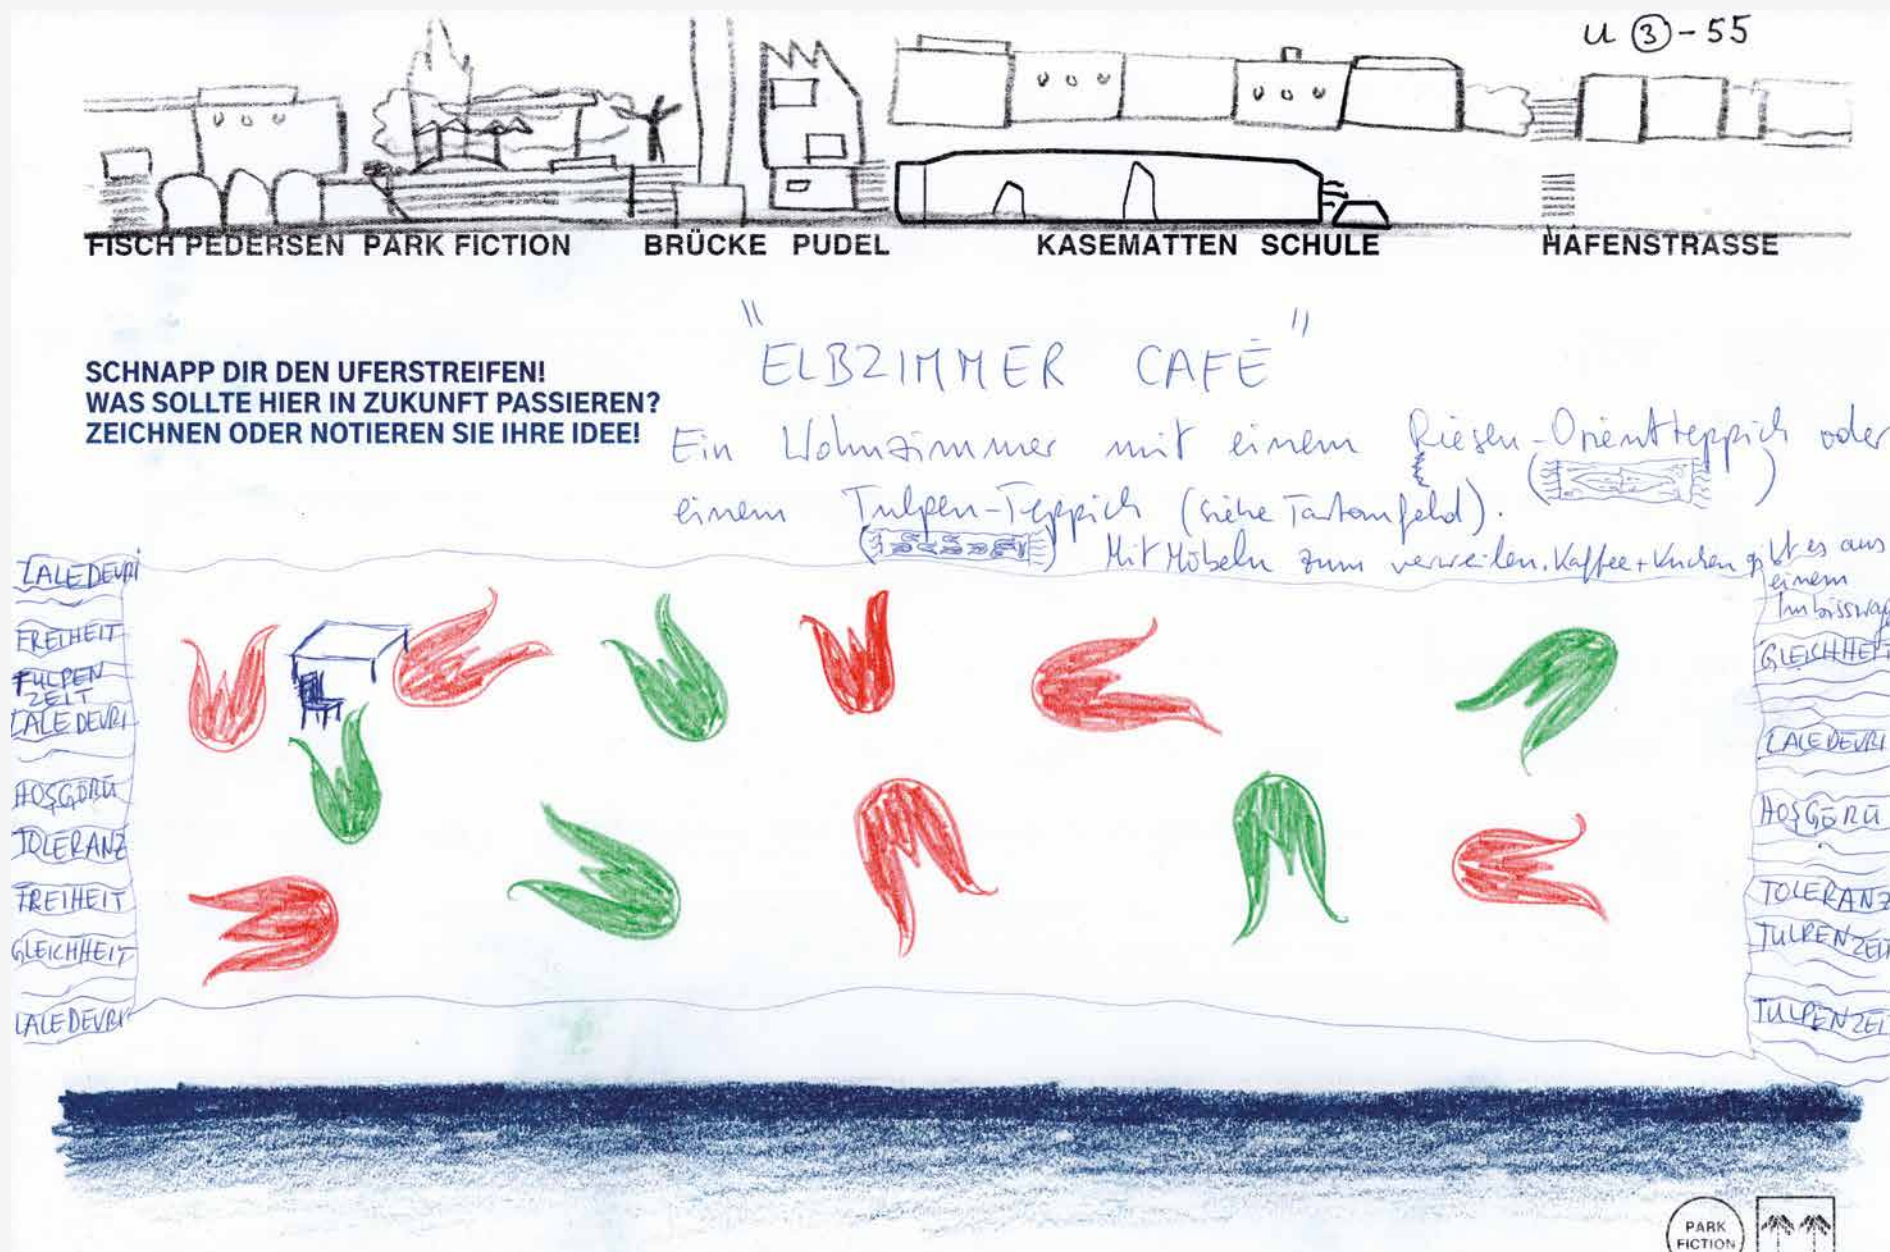 U ③-55
FISCH PEDERSEN PARK FICTION BRÜCKE PUDEL KASEMATTEN SCHULE HAFENSTRASSE
SCHNAPP DIR DEN UFERSTREIFEN!
WAS SOLLTE HIER IN ZUKUNFT PASSIEREN?
ZEICHNEN ODER NOTIEREN SIE IHRE IDEE!
"ELBZIMMER CAFÉ"
Ein Wohnzimmer mit einem Riesen-Orientteppich oder
einem Tulpen-Teppich (siehe Tartanfeld).
Mit Möbeln zum verweilen. Kaffee+Kuchen gibt es aus
einem
Imbisswag
LALE DEVRI
FREIHEIT
TULPEN
ZEIT
LALE DEVRI
HOŞGÖRÜ
TOLERANZ
FREIHEIT
GLEICHHEIT
LALE DEVRI
GLEICHHEIT
LALE DEVRI
HOŞGÖRÜ
TOLERANZ
TULPENZEIT
TULPENZEIT
PARK
FICTION